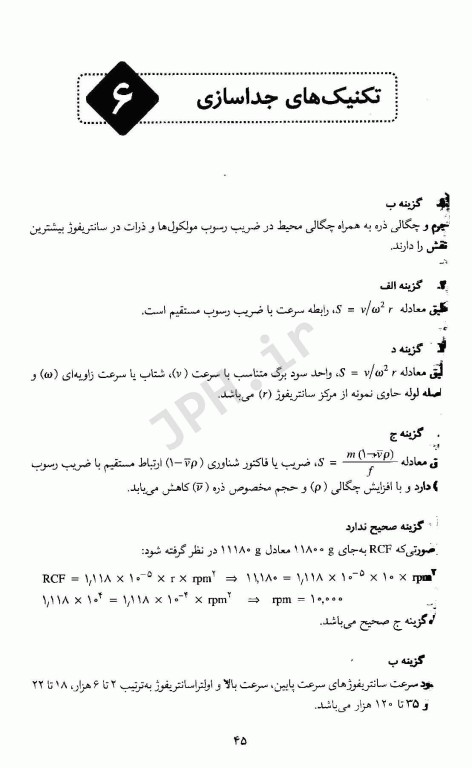 تکنیک‌های جداسازی
۶
گزینه ب
و چگالی ذره به همراه چگالی محیط در ضریب رسوب مولکول‌ها و ذرات در سانتریفوژ بیشترین
نقش را دارند.
گزینه الف
معادله S = v/ω² r، رابطه سرعت با ضریب رسوب مستقیم است.
گزینه د
معادله S = v/ω² r، واحد سود برگ متناسب با سرعت (v)، شتاب یا سرعت زاویه‌ای (ω) و
لوله حاوی نمونه از مرکز سانتریفوژ (r) می‌باشد.
گزینه ج
معادله S = m (۱−v̅ρ) / f، ضریب یا فاکتور شناوری (۱−v̅ρ) ارتباط مستقیم با ضریب رسوب
دارد و با افزایش چگالی (ρ) و حجم مخصوص ذره (v̅) کاهش می‌یابد.
گزینه صحیح ندارد
صورتی‌که RCF به‌جای ۱۱۸۰۰ g معادل ۱۱۱۸۰ g در نظر گرفته شود:
RCF = ۱٫۱۱۸ × ۱۰⁻⁵ × r × rpm² ⇒ ۱۱٫۱۸۰ = ۱٫۱۱۸ × ۱۰⁻⁵ × ۱۰ × rpm²
۱٫۱۱۸ × ۱۰⁴ = ۱٫۱۱۸ × ۱۰⁻⁴ × rpm² ⇒ rpm = ۱۰٫۰۰۰
گزینه ج صحیح می‌باشد.
گزینه ب
سرعت سانتریفوژهای سرعت پایین، سرعت بالا و اولتراسانتریفوژ به‌ترتیب ۲ تا ۶ هزار، ۱۸ تا ۲۲
و ۳۵ تا ۱۲۰ هزار می‌باشد.
۴۵
JPH.ir